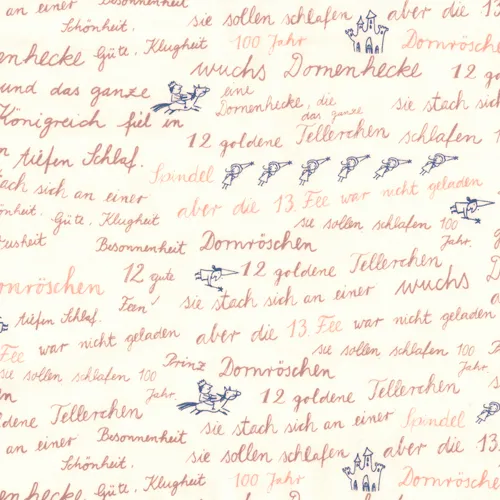 an einer Besonnenheit sie sollen schlafen aber die 13.
Schönheit.
Güte, Klugheit 100 Jahr Dornröschen
nenhecke wuchs Dornenhecke 12 g
und das ganze eine
Dornenhecke, die sie stach sich
das ganze
Königreich fiel in 12 goldene Tellerchen schlafen
n tiefen Schlaf. Spindel
tach sich an einer aber die 13. Fee war nicht geladen
önheit. Güte, Klugheit sie sollen schlafen 100
Jahr.
Besonnenheit Dornröschen
ornröschen 12 gute 12 goldene Tellerchen
Feen sie stach sich an einer wuchs D
tiefen Schlaf. aber die 13. Fee war nicht geladen
Fee war nicht geladen sie sollen schlafen 100
Jahr.
Prinz Dornröschen
sie sollen schlafen 100
Jahr. 12 goldene Tellerchen
dene Tellerchen sie stach sich an einer Spindel
an einer Besonnenheit sie sollen schlafen aber die 13.
Schönheit.
nenhecke Güte, Klugheit 100 Jahr Dornrösche